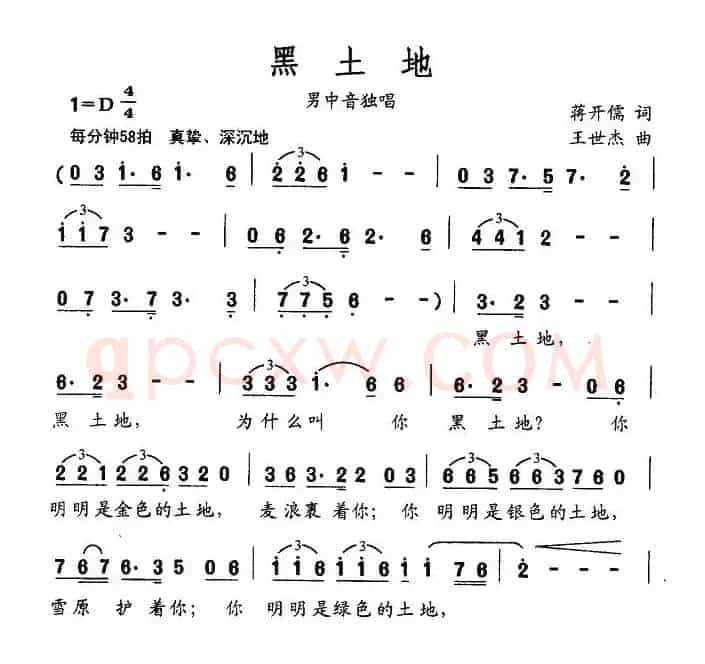 黑土地
1=D 4/4
男中音独唱
蒋开儒 词
每分钟58拍 真挚、深沉地
王世杰 曲
( 0 3 1· 6 1· 6 | 2 2 6 1 - - | 0 3 7· 5 7· 2 |
1 1 7 3 - - | 0 6 2· 6 2· 6 | 4 4 1 2 - - |
0 7 3· 7 3· 3 | 7 7 5 6 - - ) | 3· 2 3 - - |
黑 土 地,
6· 2 3 - - | 3 3 3 1· 6 6 | 6· 2 3 - 0 6 |
黑 土 地, 为什么叫 你 黑 土地? 你
2 2 1 2 2 6 3 2 0 | 3 6 3· 2 2 0 3 | 6 6 5 6 6 3 7 6 0 |
明明是金色的土地, 麦浪裹着你; 你 明明是银色的土地,
7 6 7 6· 3 5 0 6 | 1 1 6 1 1 6 1 7 6 | 2 - - |
雪原 护着你; 你 明明是绿色的土地,
qpcxw.COM